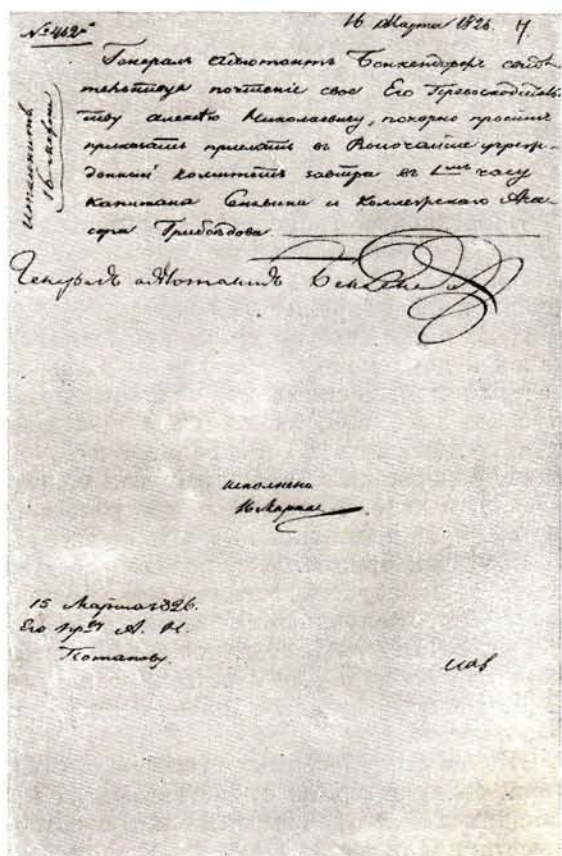 № 462й
16 Марта 1826. 7.
Генералъ адъютантъ Бенкендорфъ свидѣ-
тельствуя почтеніе свое Его Превосходитель-
ству Алексѣю Николаевичу, покорно проситъ
приказать прислать въ Высочайше учреж-
денный Комитетъ завтра въ часу
Капитана Сенявина и Коллежскаго Асе-
сора Грибоѣдова
исполнить
16 марта
Генералъ адъютантъ Бенкендорфъ
исполнено
16 Марта
15 Марта 1826.
Его пр-ву А. Н.
Потапову.